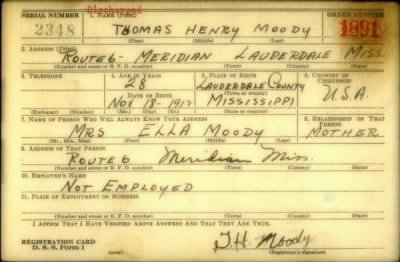 Discharged
SERIAL NUMBER 1. NAME (Print) ORDER NUMBER
2348 THOMAS HENRY MOODY 1891
(First) (Middle) (Last)
2. ADDRESS (Print)
ROUTE 6 - MERIDIAN LAUDERDALE MISS.
(Number and street or R. F. D. number) (Town) (County) (State)
3. TELEPHONE 4. AGE IN YEARS 5. PLACE OF BIRTH 6. COUNTRY OF CITIZENSHIP
28 LAUDERDALE COUNTY
DATE OF BIRTH (Town or county)
NOV 18- 1912 MISSISSIPPI U.S.A.
(Exchange) (Number) (Mo.) (Day) (Yr.) (State or country)
7. NAME OF PERSON WHO WILL ALWAYS KNOW YOUR ADDRESS 8. RELATIONSHIP OF THAT PERSON
MRS ELLA MOODY MOTHER
(Mr., Mrs., Miss) (First) (Middle) (Last)
9. ADDRESS OF THAT PERSON
ROUTE 6 Meridian Miss.
(Number and street or R. F. D. number) (Town) (County) (State)
10. EMPLOYER'S NAME
NOT EMPLOYED
11. PLACE OF EMPLOYMENT OR BUSINESS
(Number and street or R. F. D. number) (Town) (County) (State)
I AFFIRM THAT I HAVE VERIFIED ABOVE ANSWERS AND THAT THEY ARE TRUE.
REGISTRATION CARD T.H. Moody
D. S. S. Form 1 (over) (Registrant's signature)